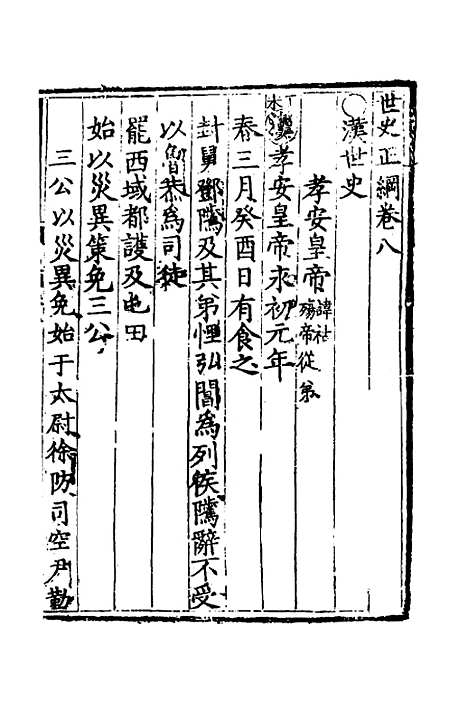 世史正綱卷八
○漢世史
孝安皇帝 諱祜 殤帝從弟
丁未 孝安皇帝永初元年
春三月癸酉日有食之
封舅鄧隲及其弟悝弘閶爲列侯隲辭不受
以魯恭爲司徒
罷西域都護及屯田
始以災異策免三公
三公以災異免始于太尉徐防司空尹勤